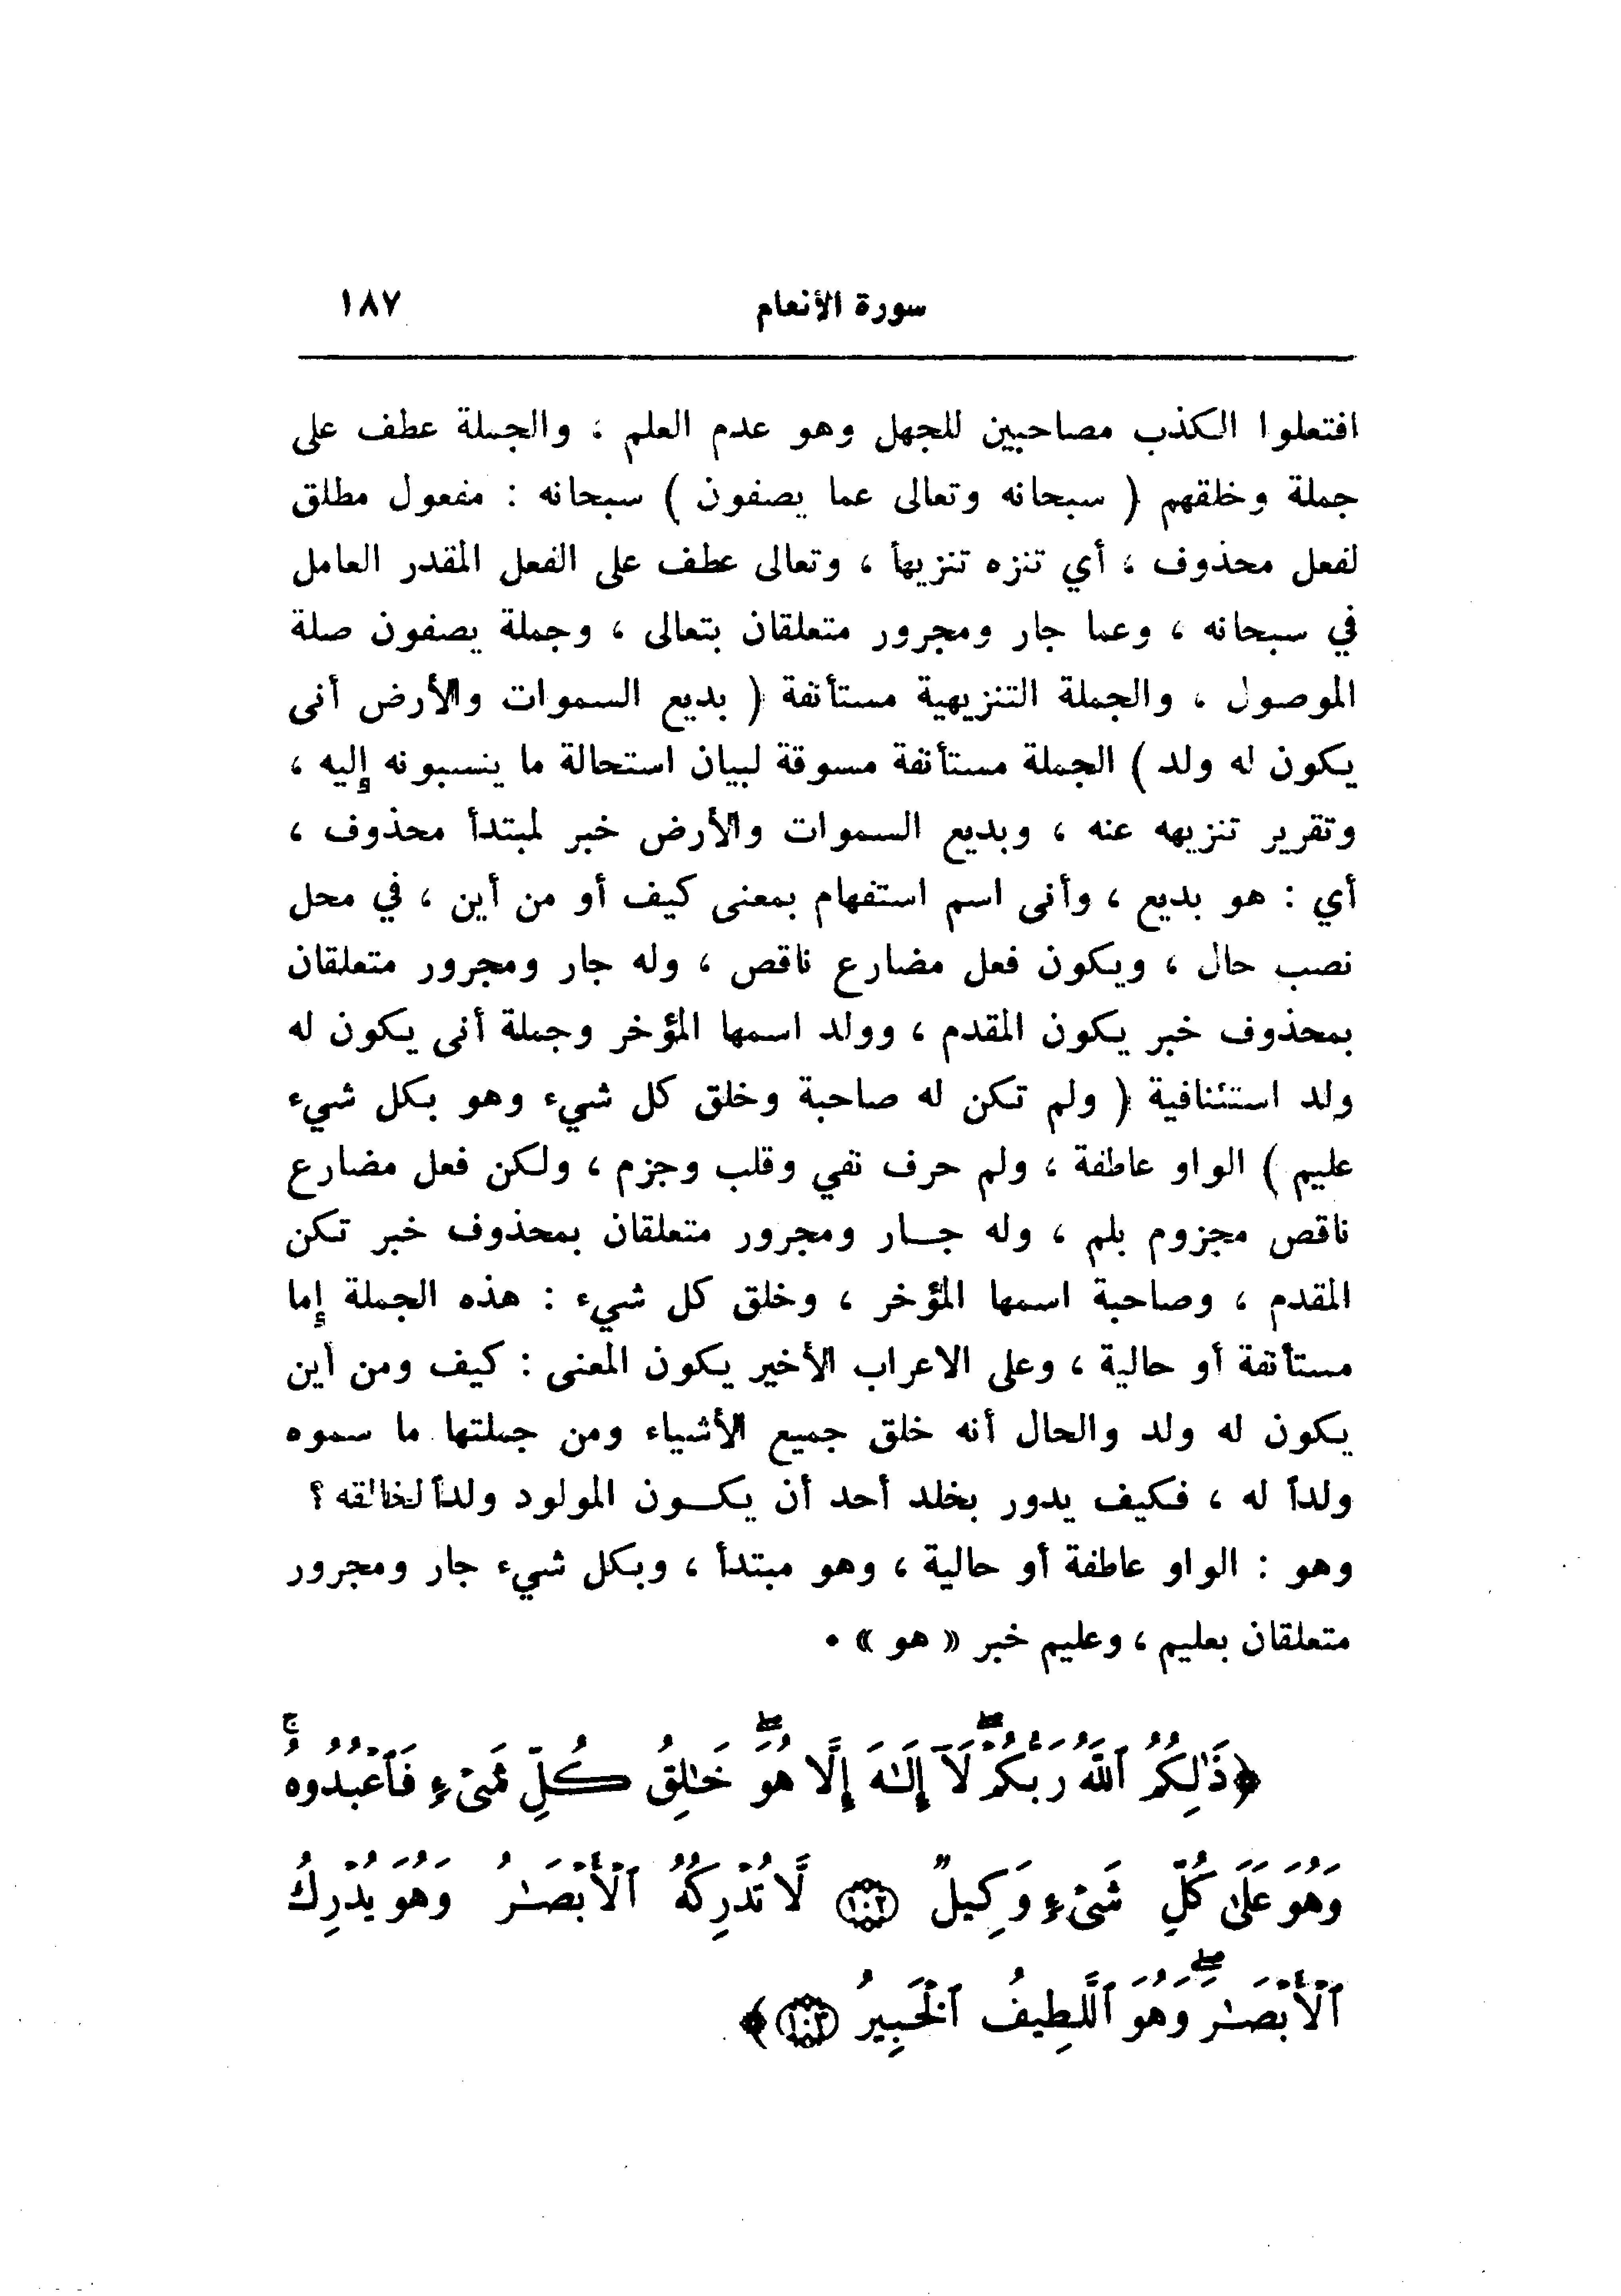 سورة الأنعام ١٨٧
افتعلوا الكذب مصاحبين للجهل وهو عدم العلم ، والجملة عطف على
جملة وخلقهم ( سبحانه وتعالى عما يصفون ) سبحانه : مفعول مطلق
لفعل محذوف ، أي تنزه تنزيهاً ، وتعالى عطف على الفعل المقدر العامل
في سبحانه ، وعما جار ومجرور متعلقان بتعالى ، وجملة يصفون صلة
الموصول ، والجملة التنزيهية مستأنفة ( بديع السموات والأرض أنى
يكون له ولد ) الجملة مستأنفة مسوقة لبيان استحالة ما ينسبونه إليه ،
وتقرير تنزيهه عنه ، وبديع السموات والأرض خبر لمبتدأ محذوف ،
أي : هو بديع ، وأنى اسم استفهام بمعنى كيف أو من أين ، في محل
نصب حال ، ويكون فعل مضارع ناقص ، وله جار ومجرور متعلقان
بمحذوف خبر يكون المقدم ، وولد اسمها المؤخر وجملة أنى يكون له
ولد استئنافية ( ولم تكن له صاحبة وخلق كل شيء وهو بكل شيء
عليم ) الواو عاطفة ، ولم حرف نفي وقلب وجزم ، ولكن فعل مضارع
ناقص مجزوم بلم ، وله جار ومجرور متعلقان بمحذوف خبر تكن
المقدم ، وصاحبة اسمها المؤخر ، وخلق كل شيء : هذه الجملة إما
مستأنفة أو حالية ، وعلى الاعراب الأخير يكون المعنى : كيف ومن أين
يكون له ولد والحال أنه خلق جميع الأشياء ومن جملتها ما سموه
ولداً له ، فكيف يدور بخلد أحد أن يكون المولود ولداً لخالقه ؟
وهو : الواو عاطفة أو حالية ، وهو مبتدأ ، وبكل شيء جار ومجرور
متعلقان بعليم ، وعليم خبر « هو » •
﴿ذَٰلِكُمُ ٱللَّهُ رَبُّكُمْ ۖ لَآ إِلَٰهَ إِلَّا هُوَ ۖ خَٰلِقُ كُلِّ شَىْءٍ فَٱعْبُدُوهُ ۚ
وَهُوَ عَلَىٰ كُلِّ شَىْءٍ وَكِيلٌ ١٠٢ لَّا تُدْرِكُهُ ٱلْأَبْصَٰرُ وَهُوَ يُدْرِكُ
ٱلْأَبْصَٰرَ ۖ وَهُوَ ٱللَّطِيفُ ٱلْخَبِيرُ ١٠٣﴾